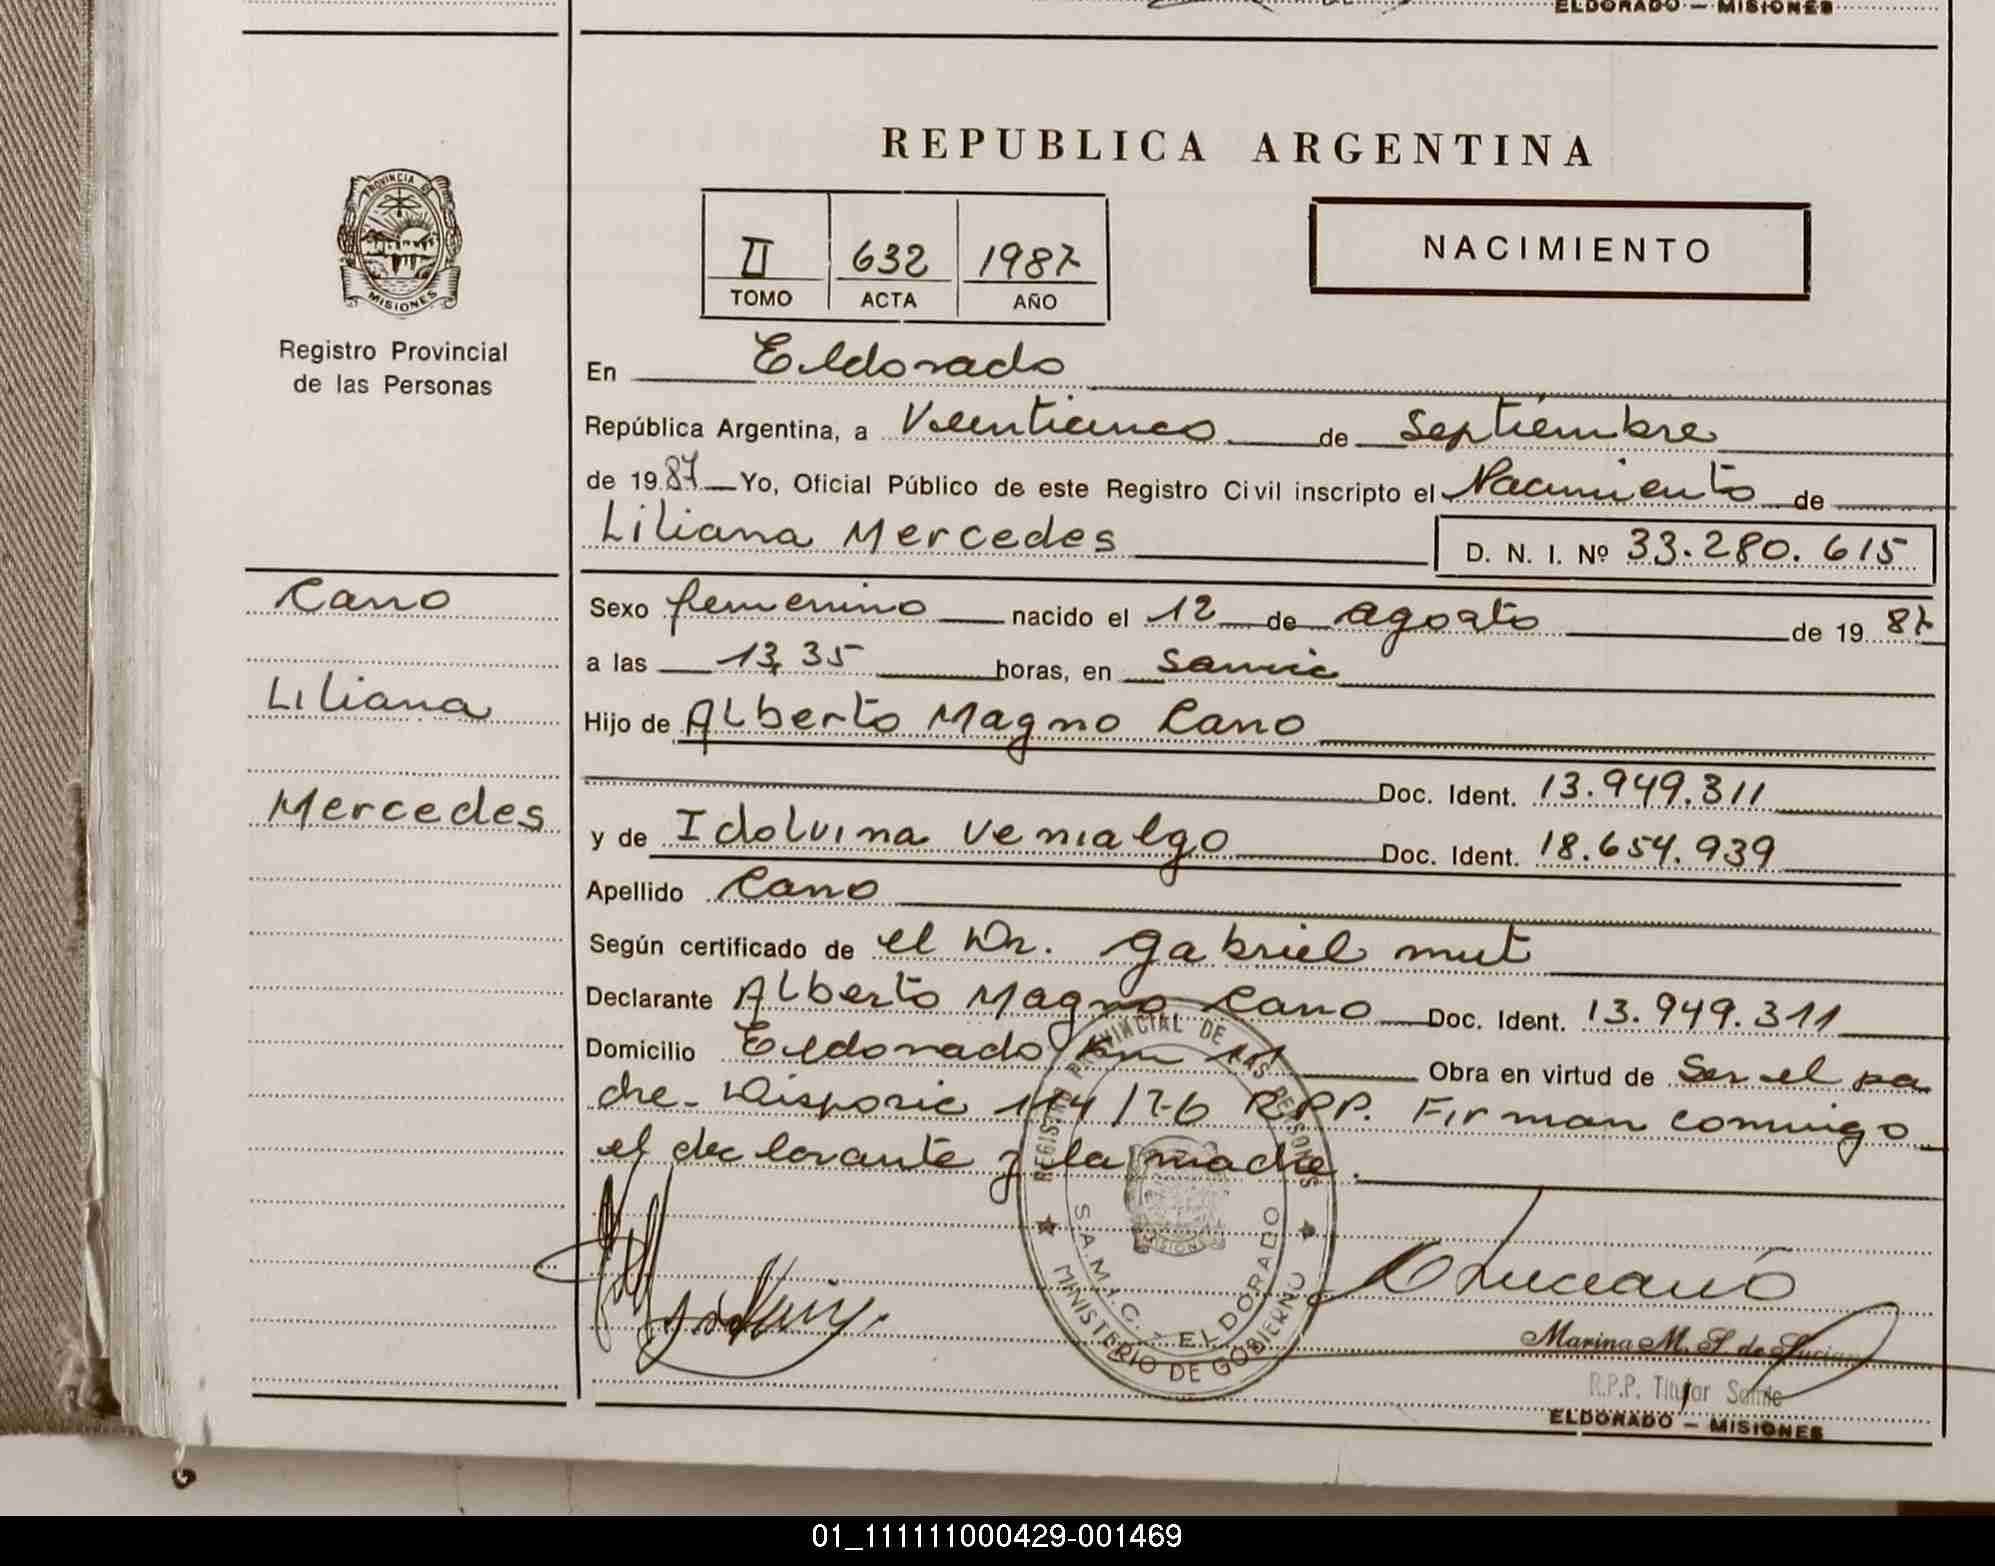 ELDORADO — MISIONES
REPUBLICA ARGENTINA
PROVINCIA DE
MISIONES
Registro Provincial
de las Personas
II 632 1987
TOMO ACTA AÑO
NACIMIENTO
En Eldorado
República Argentina, a Veinticinco de Septiembre
de 1987 Yo, Oficial Público de este Registro Civil inscripto el Nacimiento de
Liliana Mercedes D. N. I. Nº 33.280.615
Cano
Liliana
Mercedes
Sexo femenino nacido el 12 de agosto de 19 87
a las 13,35 horas, en Samic
Hijo de Alberto Magno Cano
Doc. Ident. 13.949.311
y de Idolvina Venialgo Doc. Ident. 18.654.939
Apellido Cano
Según certificado de el Dr. Gabriel mut
Declarante Alberto Magno Cano Doc. Ident. 13.949.311
Domicilio Eldorado Km 11 Obra en virtud de Ser el pa
dre. Disposic 114/76 RPP. Firman conmigo
el declarante y la madre.
REGISTRO PROVINCIAL DE LAS PERSONAS
MISIONES
S.A.M.I.C. - ELDORADO
MINISTERIO DE GOBIERNO
Marina M. S. de Luciano
R.P.P. Titular Samic
ELDORADO — MISIONES
01_111111000429-001469